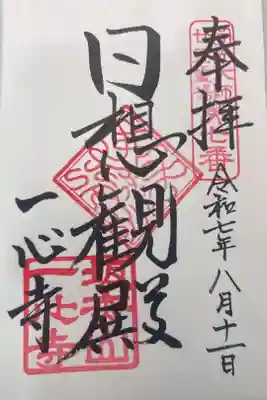 奉拝
令和七年八月十一日
日想観殿
一心寺